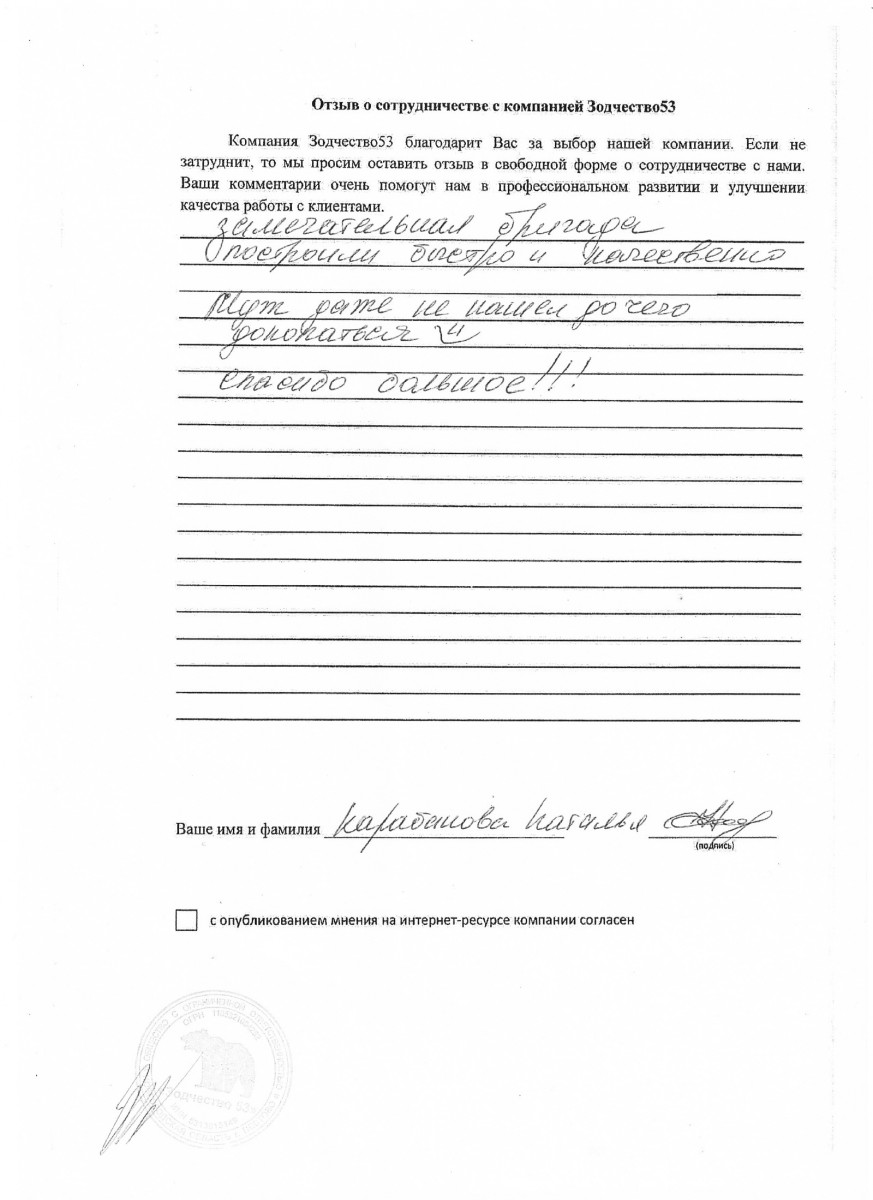 Отзыв о сотрудничестве с компанией Зодчество53
Компания Зодчество53 благодарит Вас за выбор нашей компании. Если не
затруднит, то мы просим оставить отзыв в свободной форме о сотрудничестве с нами.
Ваши комментарии очень помогут нам в профессиональном развитии и улучшении
качества работы с клиентами.
замечательная бригада
построили быстро и качественно
Муж даже не нашел до чего
докопаться
Спасибо большое!!!
Ваше имя и фамилия Карабанова Наталья
(подпись)
с опубликованием мнения на интернет-ресурсе компании согласен
Зодчество 53